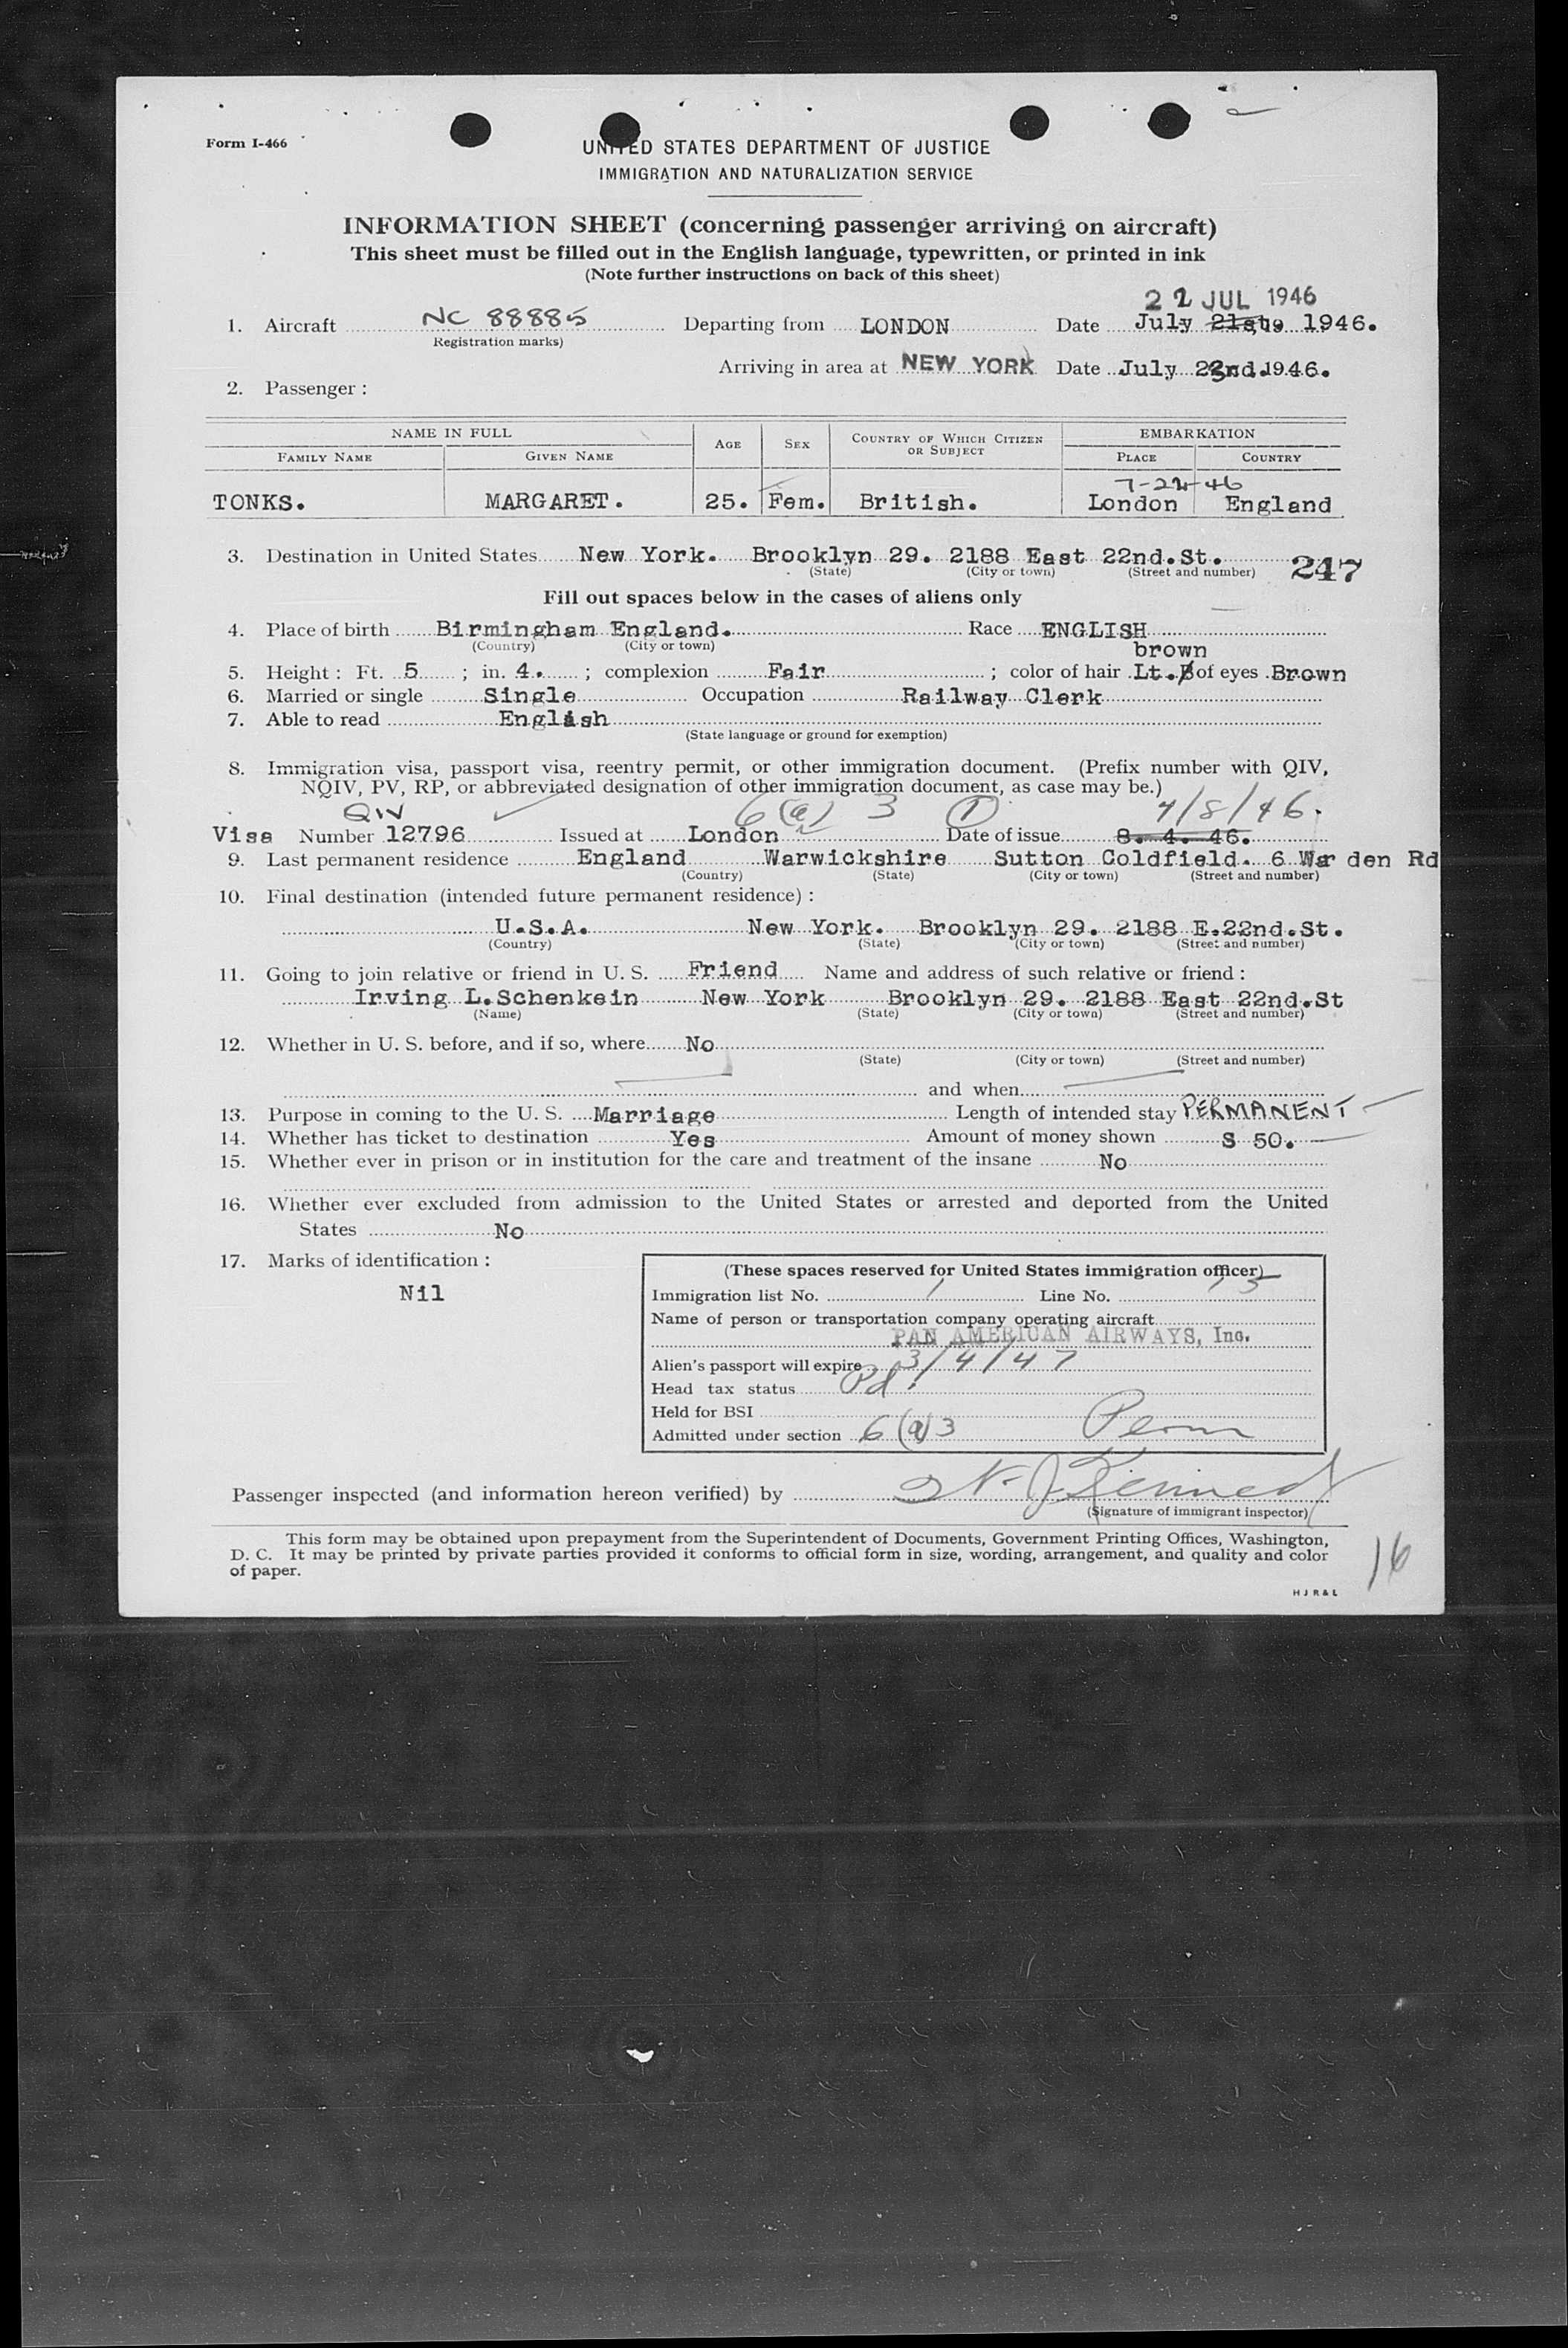 Form I-466
UNITED STATES DEPARTMENT OF JUSTICE
IMMIGRATION AND NATURALIZATION SERVICE
INFORMATION SHEET (concerning passenger arriving on aircraft)
This sheet must be filled out in the English language, typewritten, or printed in ink
(Note further instructions on back of this sheet)
22 JUL 1946
1. Aircraft NC 88885 Departing from LONDON Date July 21st 1946.
(Registration marks)
Arriving in area at NEW YORK Date July 22nd. 1946.
2. Passenger :
NAME IN FULL AGE SEX COUNTRY OF WHICH CITIZEN OR SUBJECT EMBARKATION
FAMILY NAME GIVEN NAME PLACE COUNTRY
7-22-46
TONKS. MARGARET. 25. Fem. British. London England
3. Destination in United States New York. Brooklyn 29. 2188 East 22nd.St. 247
(State) (City or town) (Street and number)
Fill out spaces below in the cases of aliens only
4. Place of birth Birmingham England. Race ENGLISH
(Country) (City or town)
brown
5. Height : Ft. 5 ; in. 4. ; complexion Fair ; color of hair Lt. B of eyes Brown
6. Married or single Single Occupation Railway Clerk
7. Able to read English
(State language or ground for exemption)
8. Immigration visa, passport visa, reentry permit, or other immigration document. (Prefix number with QIV,
NQIV, PV, RP, or abbreviated designation of other immigration document, as case may be.)
QIV 6(a) 3 1 4/8/46.
Visa Number 12796 Issued at London Date of issue 8. 4. 46.
9. Last permanent residence England Warwickshire Sutton Coldfield. 6 War den Rd
(Country) (State) (City or town) (Street and number)
10. Final destination (intended future permanent residence) :
U.S.A. New York. Brooklyn 29. 2188 E.22nd.St.
(Country) (State) (City or town) (Street and number)
11. Going to join relative or friend in U. S. Friend Name and address of such relative or friend :
Irving L.Schenkein New York Brooklyn 29. 2188 East 22nd.St
(Name) (State) (City or town) (Street and number)
12. Whether in U. S. before, and if so, where No
(State) (City or town) (Street and number)
and when
13. Purpose in coming to the U. S. Marriage Length of intended stay PERMANENT
14. Whether has ticket to destination Yes Amount of money shown S 50.
15. Whether ever in prison or in institution for the care and treatment of the insane No
16. Whether ever excluded from admission to the United States or arrested and deported from the United
States No
17. Marks of identification :
Nil
(These spaces reserved for United States immigration officer)
Immigration list No. 1 Line No. 15
Name of person or transportation company operating aircraft
PAN AMERICAN AIRWAYS, Inc.
Alien's passport will expire 3/4/47
Head tax status Pd.
Held for BSI
Admitted under section 6(a)3 Perm
Passenger inspected (and information hereon verified) by J. Kennedy
(Signature of immigrant inspector)
This form may be obtained upon prepayment from the Superintendent of Documents, Government Printing Offices, Washington,
D. C. It may be printed by private parties provided it conforms to official form in size, wording, arrangement, and quality and color
of paper.
16
H J R & L